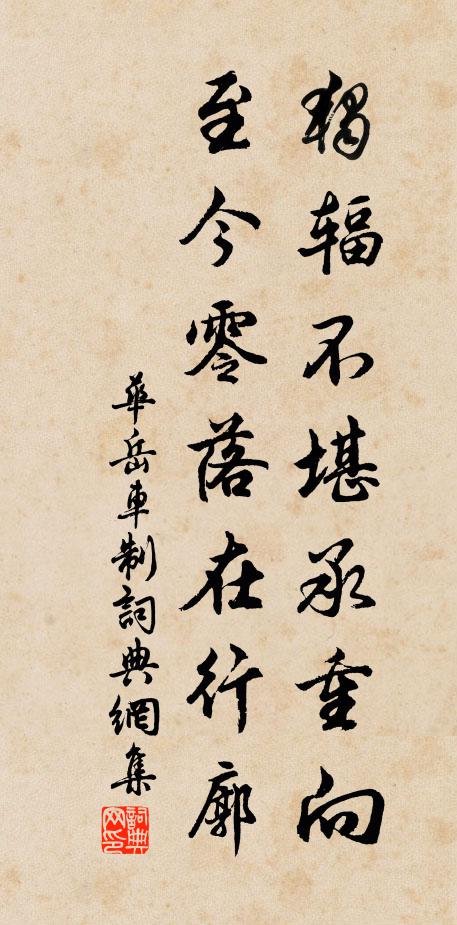 獨辐不堪承重向
至今零落在行廓
華岳車制詞典網集
詞典网印